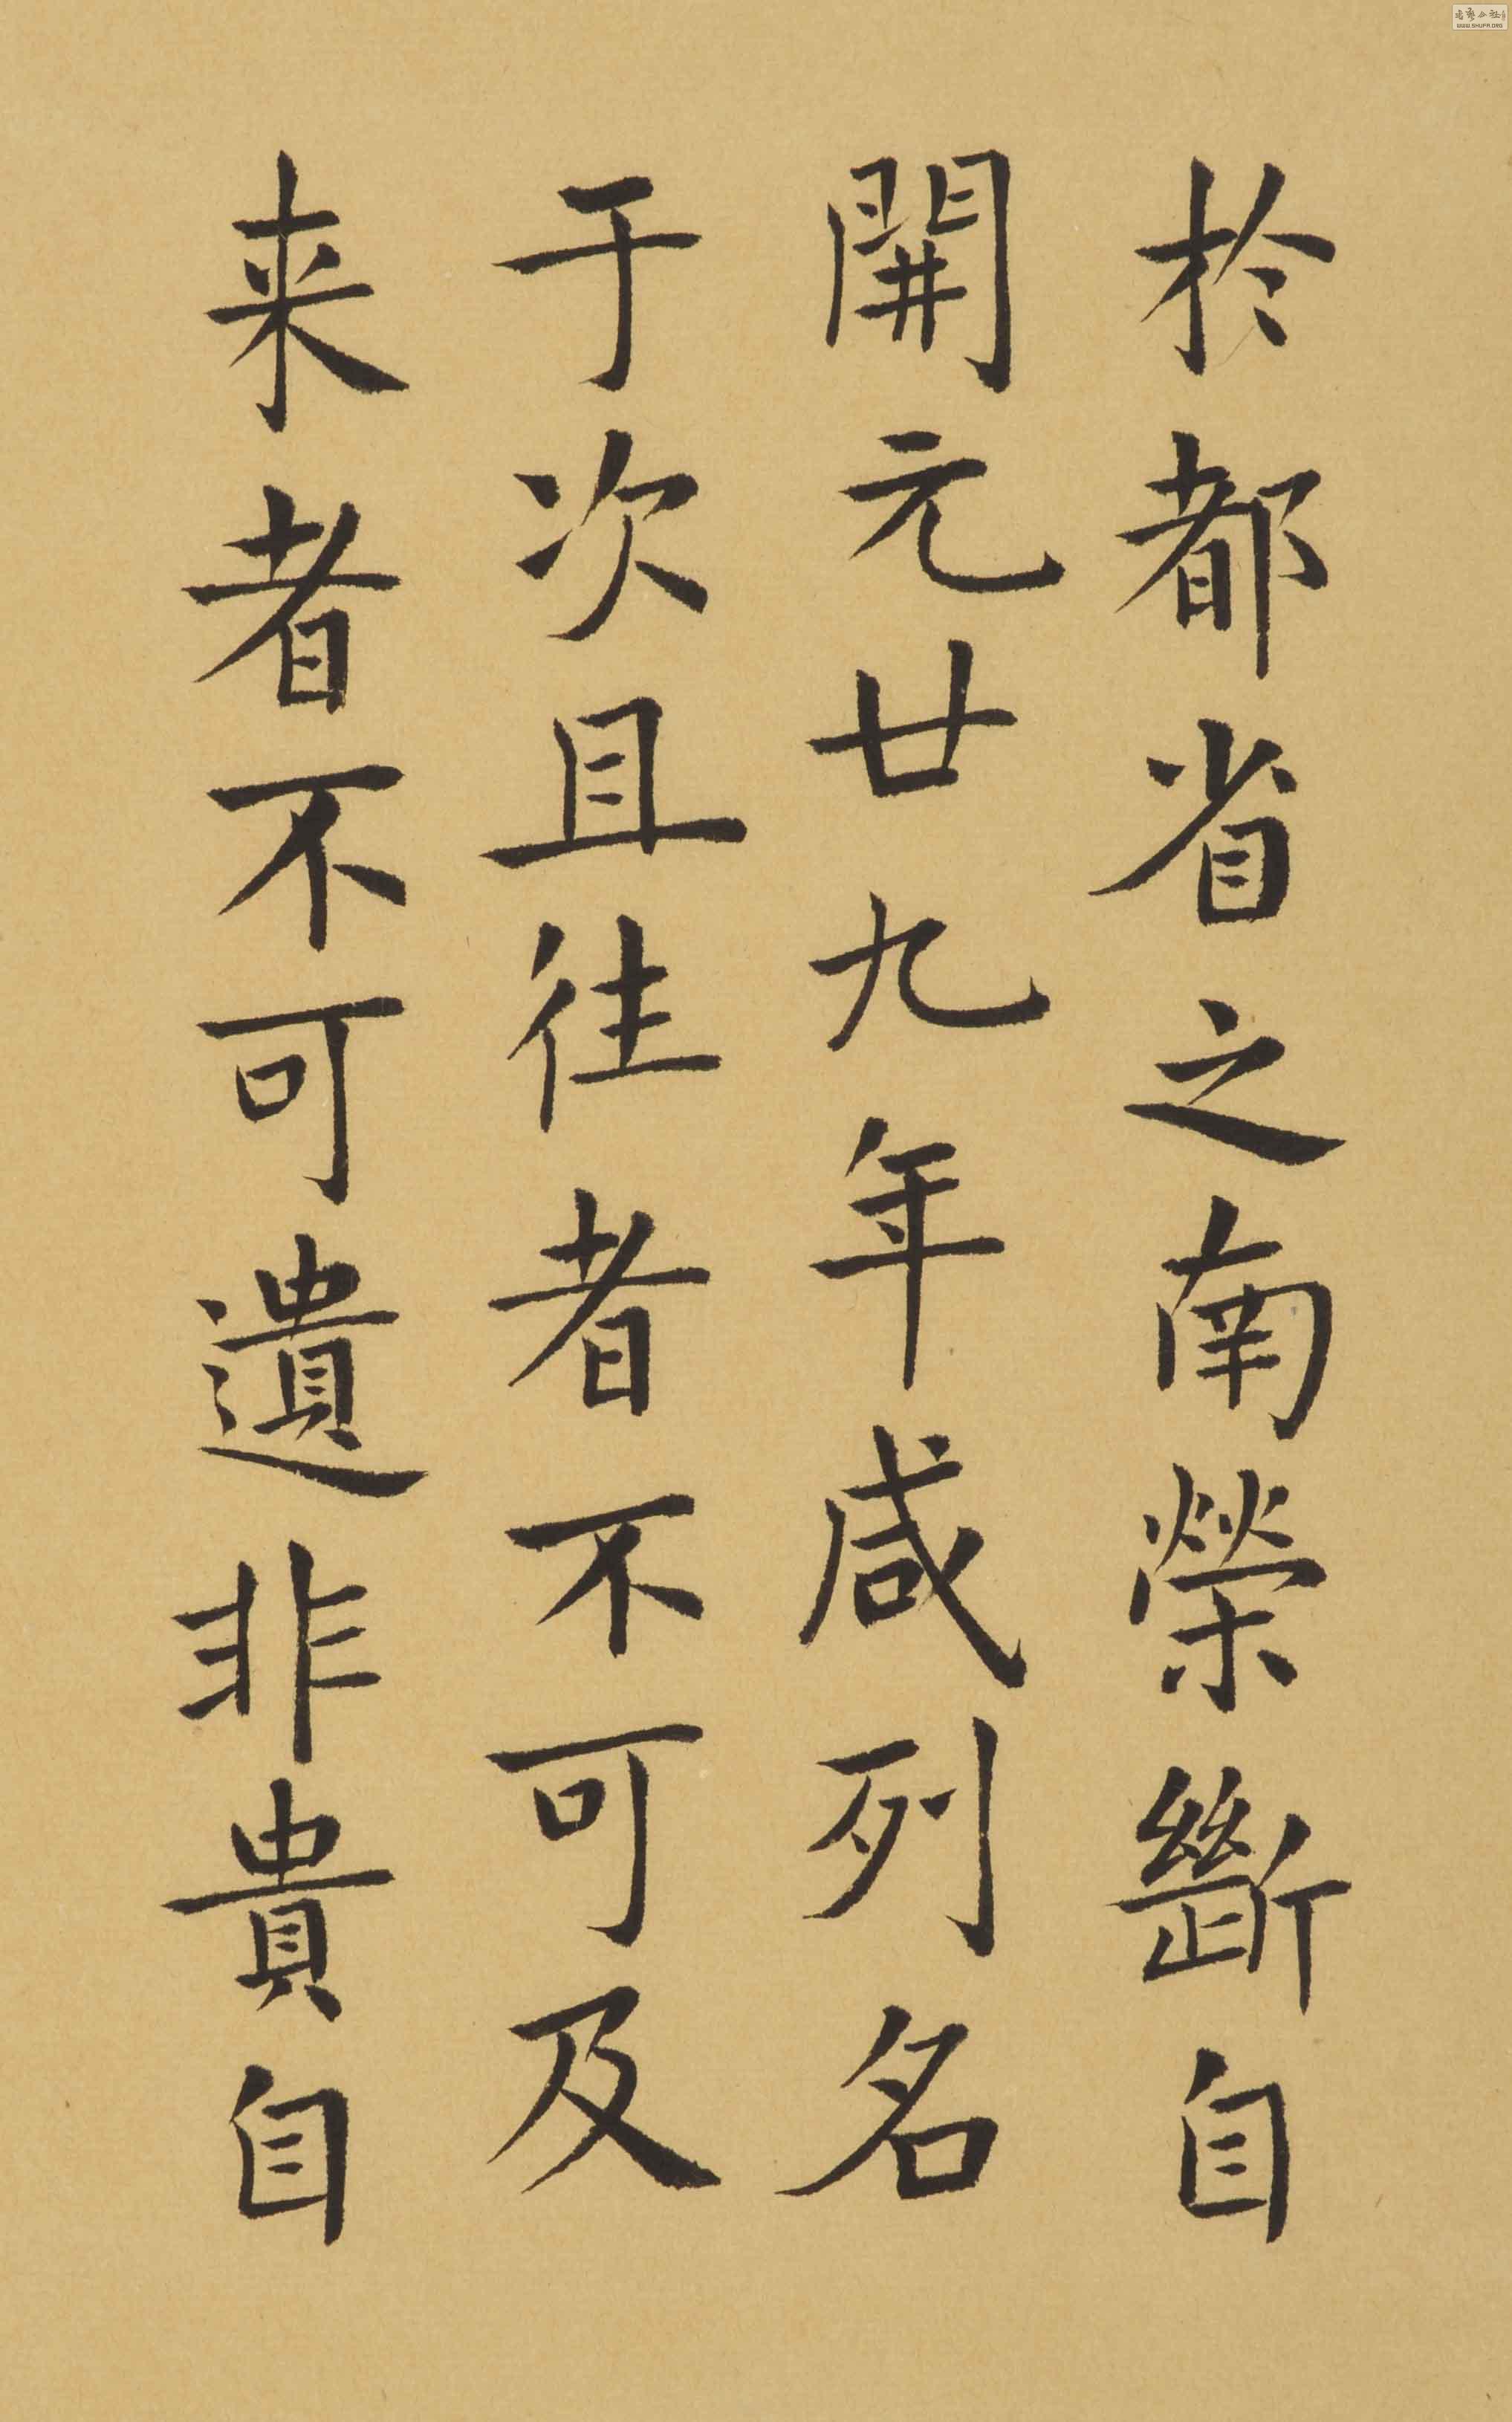 於都省之南榮斷自
開元廿九年咸列名
于次且往者不可及
来者不可遺非貴自
WWW.SHUFA.ORG